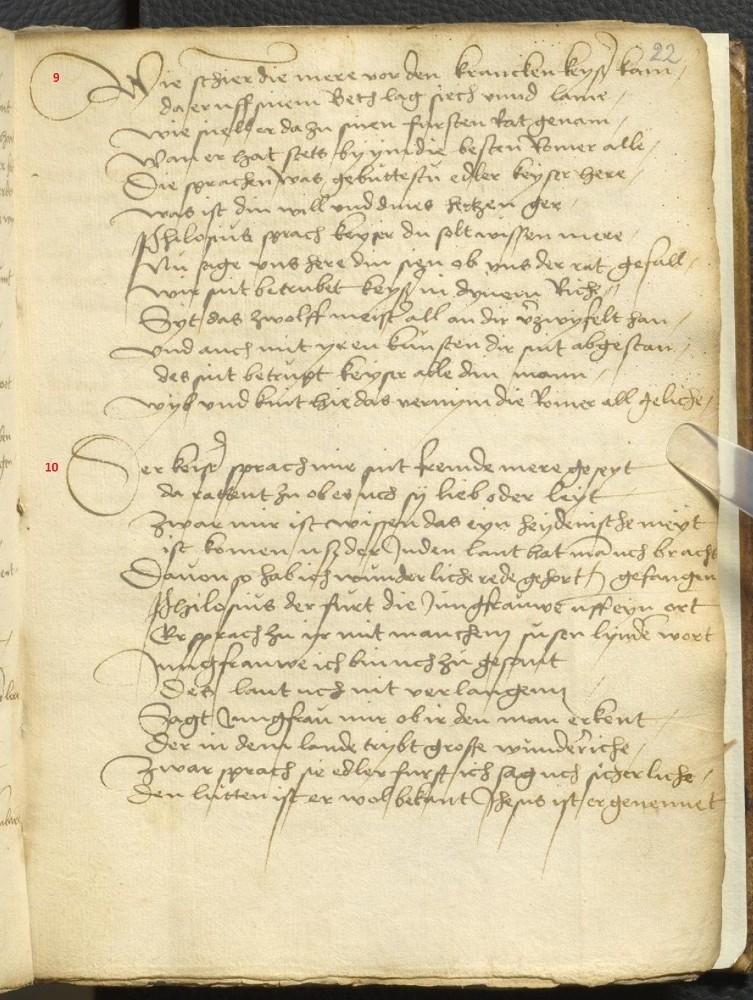 22
9
Wie schier die mere vor den krancken keyser kam /
da er uff sinem Beth lag siech vnnd lame /
wie snel er da zu sinen fursten Rat genam /
Wan er hat stets by ym die besten Romer alle /
Die sprachen was gebuttestu edler keyser here /
was ist din will vnd dines hertzen ger /
Philosius sprach keyser du solt wissen mere /
Nu sage vns here din sien ob vns der rat gefall /
wir sint betrubet keyser in dynem Rich /
Syt das zwolff meister all an dir verzwyfelt han /
vnd auch mit yren kunsten dir sint abgestan /
des sint betrupt keyser alle din mann /
wyb vnd kint hie das vernym die Romer all geliche /
10
Der keiser sprach mir sint fremde mere geseyt
da ratent zu ob es uch sy lieb oder leyt
zwar mir ist wissen das eyn heydenische meyt
ist komen usz der Juden lant hat man uch bracht
Dauon so hab ich wunderliche rede gehort gefangen
Philosius der furt die Jungfrauwe uff eyn ort
Er sprach zu ir mit manchem susen lynden wort
Jungfrauwe ich bin uch zu gesant
Des lant uch nit verlangenn
Sagt Jungfrau mir ob ir den man erkent /
Der in dem lande trybt grosse wunderiche /
zwar sprach sie edler furst ich sag uch sicherliche /
den lutten ist er wol bekant Jhesus ist er genennet